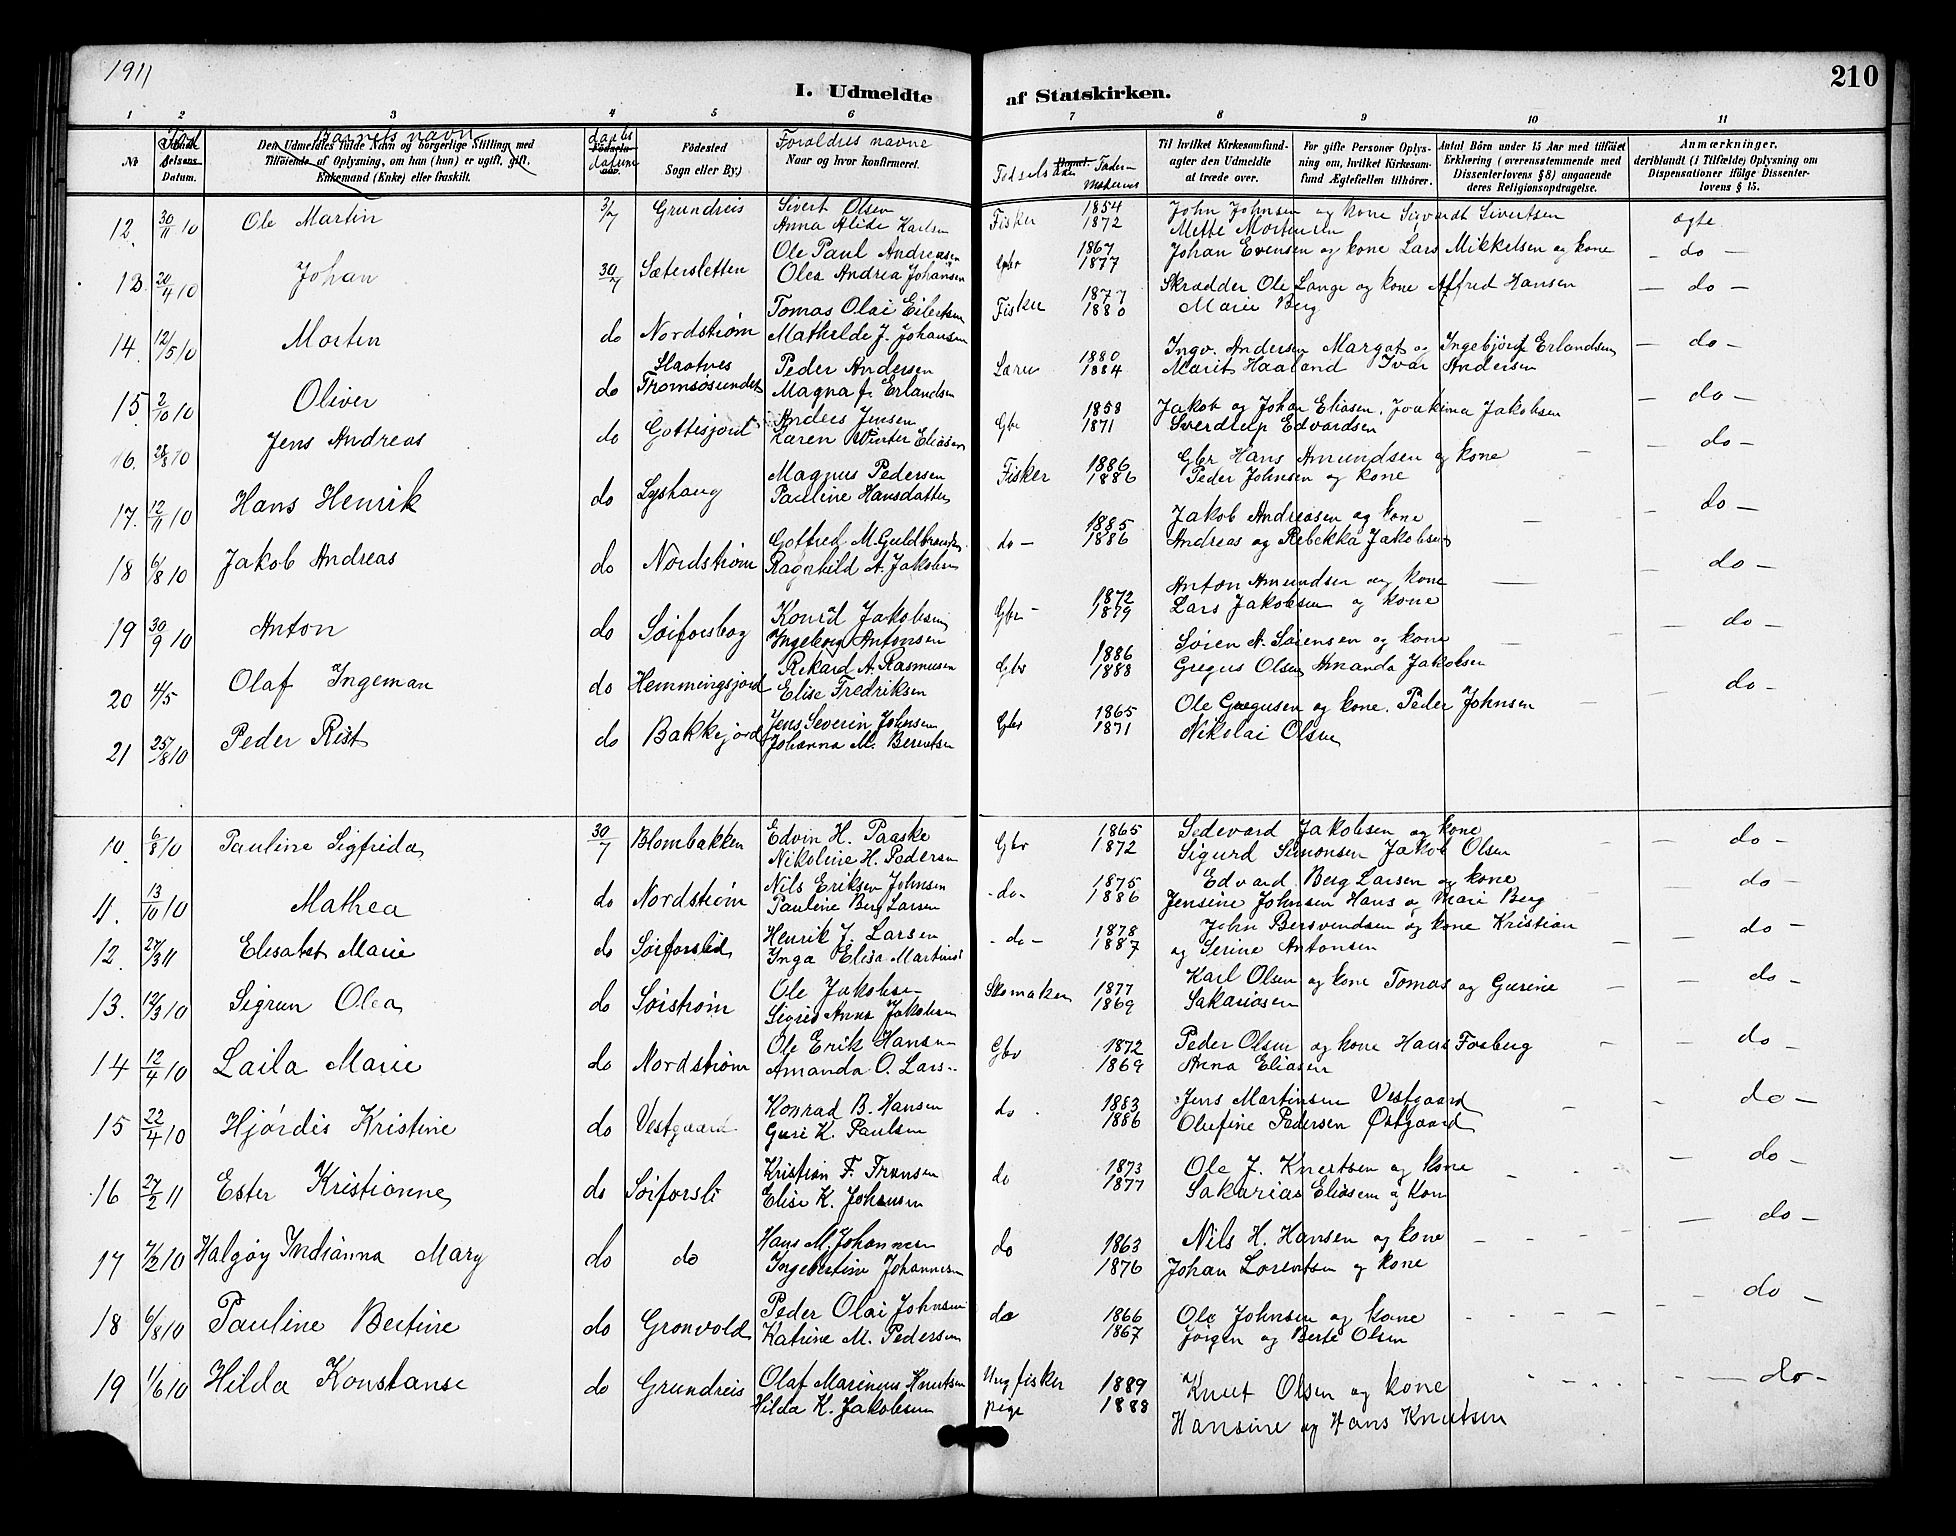 1911
210
I. Udmeldte af Statskirken.
1 2 3 4 5 6 7 8 9 10 11
No
Datum.
Barnets navn
Den Udmeldtes fulde Navn og borgerlige Stilling med
Tilføiende af Oplysning, om han (hun) er ugift, gift,
Enkemand (Enke) eller fraskilt.
daabs
datum
Fødested
Sogn eller By.)
Foraldres navne
Naar og hvor konfirmeret.
Fødsels
Til hvilket Kirkesamfund-
agter den Udmeldte
at træde over.
For gifte Personer Oplys-
ning om, hvilket Kirkesam-
fund Ægtefællen tilhører.
Antal Børn under 15 Aar med tilføiet
Erklæring (overensstemmende med
Dissenterlovens § 8) angaaende
deres Religionsopdragelse.
Anmærkninger,
deriblandt (i Tilfælde) Oplysning om
Dispensationer ifølge Dissenter-
lovens § 15.
12. 30/11 10 Ole Martin 3/7 Grundreis Sivert Olsen Fisker 1854 John Johnsen og kone Sigvardt Sivertsen ægte
Anna Alide Karlsen 1872 Mette Mortensen
13. 20/4 10 Johan 30/7 Sætersletten Ole Paul Andreasen Gbr 1867 Johan Evensen og kone Lars Mikkelsen og kone — do —
Olea Andrea Johansen 1877
14. 12/5 10 Morten do Nordstrøm Tomas Olai Eilertsen Fisker 1877 Skrædder Ole Lange og kone Alfred Hansen — do —
Mathilde J. Johansen 1880 Marie Berg
15. 2/10 10 Oliver do Slaatnes Peder Andersen 1880 Ingv. Andersen Margot og Ingebjørg Erlandsen — do —
Tromsøsundet Magna f. Erlandsen 1884 Marit Haaland Ivar Andersen
16. 28/8 10 Jens Andreas do Gottesjord Anders Jensen Gbr 1858 Jakob og Johan Eliasen. Joakima Jakobsen — do —
Karen Winter Eliasen 1871 Sverdrup Edvardsen
17. 12/11 10 Hans Henrik do Lyshaug Magnus Pedersen Fisker 1886 Gbr Hans Amundsen og kone — do —
Pauline Hansdatter 1886 Peder Johnsen og kone
18 6/8 10 Jakob Andreas do Nordstrøm Gotfred M. Guldbrandsen do — 1885 Jakob Andreasen og kone — do —
Ragnhild A. Jakobsen 1886 Andreas og Rebekka Jakobsen
19 30/9 10 Anton do Sørforsbog Konrad Jakobsen Gbr — 1872 Anton Amundsen og kone — do —
Ingeborg Antonsen 1879 Lars Jakobsen og kone
20 4/5 Olaf Ingeman do Hemmingsjord Rikard A. Rasmusen Gbr 1886 Søren A. Sørensen og kone — do —
Elise Fredriksen 1888 Gregus Olsen Amanda Jakobsen
21 25/8 10 Peder Rist do Bakkejord Jens Severin Johnsen Gbr 1865 Ole Gregusen og kone. Peder Johnsen — do —
Johanna M. Berentsen 1871 Nikolai Olsen
10. 6/8 10 Pauline Sigfrida 30/7 Blombakken Edvin H. Paaske Gbr 1865 Sedevard Jakobsen og kone — do —
Nikoline H. Pedersen 1872 Sigurd Simonsen Jakob Olsen
11. 13/10 10 Mathea do Nordstrøm Nils Eriksen Johnsen do — 1875 Edvard Berg Larsen og kone — do —
Pauline Berg Larsen 1886 Jensine Johnsen Hans og Mari Berg
12. 27/3 11 Elisabet Marie do Sørforslid Henrik J. Larsen do — 1878 John Bersvendsen og kone Kristian — do —
Inga Elisa Martins 1887 og Serine Antonsen
13. 12/3 10 Sigrun Olea do Sørstrøm Ole Jakobsen Skomaker 1877 Karl Olsen og kone Tomas og Gurine — do —
Sigrid Anna Jakobsen 1869 Sakariasen
14 12/4 10 Laila Marie do Nordstrøm Ole Erik Hansen Gbr 1872 Peder Olsen og kone Hans Fosberg — do —
Amanda O. Lars.. 1869 Anna Eliasen
15 22/4 10 Hjørdis Kristine do Vestgaard Konrad B. Hansen do 1883 Jens Martinsen Vestgaard — do —
Guri K. Paulsen 1886 Olufine Pedersen Østgaard
16 27/2 11 Ester Kristianne do Sørforsli Kristian F. Fransen do 1873 Ole J. Knertsen og kone — do —
Elise K. Johansen 1877 Sakarias Eliasen og kone
17 7/2 10 Halgøy Indianna Mary do do Hans M. Johannesen do 1863 Nils H. Hansen og kone — do —
Ingebertine Johannesen 1876 Johan Lorentsen og kone
18 6/8 10 Pauline Bertine do Gronvold Peder Olai Johnsen do 1866 Ole Johnsen og kone — do —
Katrine M. Pedersen 1867 Jørgen og Berte Olsen
19 1/6 10 Hilda Konstanse do Grundreis Olaf Marineus Knutsen Ung fisker 1889 Knut Olsen og kone — do —
Hilda K. Jakobsen pige 1888 Hansine og Hans Knutsen